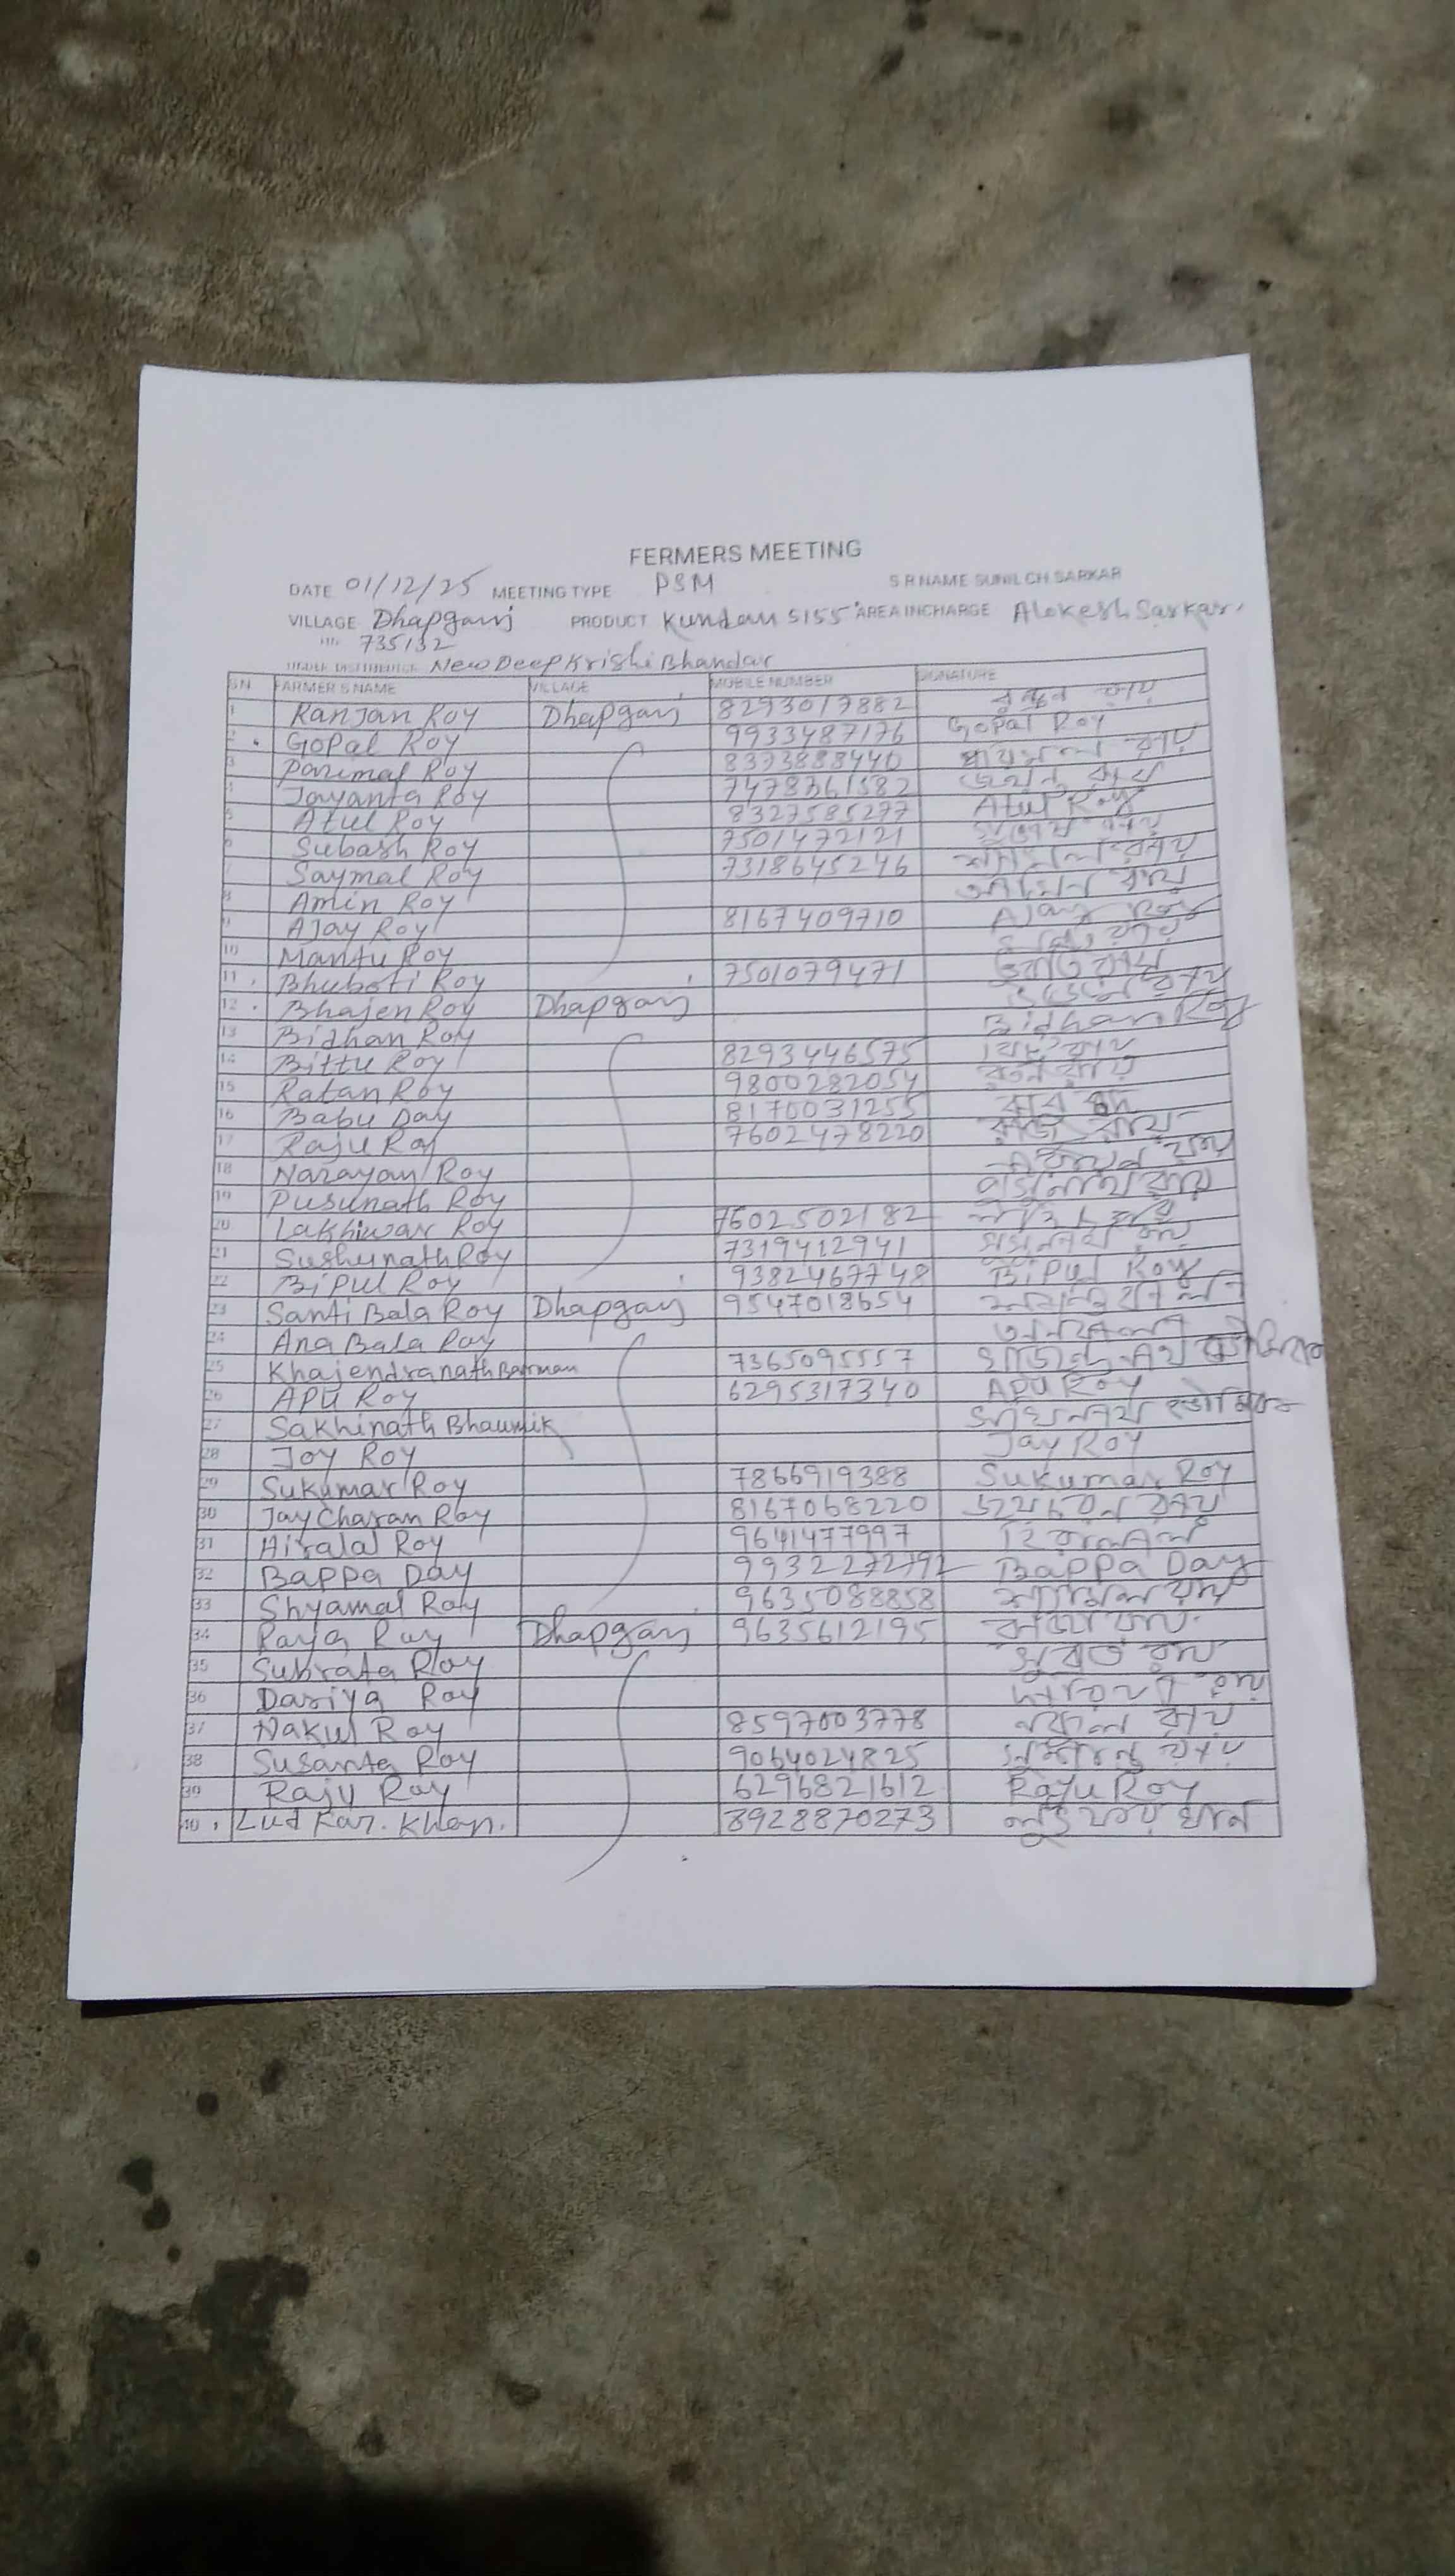 FERMERS MEETING
DATE 01/12/25 MEETING TYPE PSM S R NAME SUNIL CH SARKAR
VILLAGE Dhapganj PRODUCT Kundan 5155 AREA INCHARGE Alokesh Sarkar
735132
New Deep Krishi Bhandar
SN FARMER S NAME VILLAGE MOBILE NUMBER SIGNATURE
1 Ranjan Roy Dhapganj 8293017882 রায়
2 Gopal Roy 9933487176 Gopal Roy
3 Parimal Roy 8373888440 রায়
4 Jayanta Roy 7478361582 রায়
5 Atul Roy 8327585277 Atul Roy
6 Subash Roy 7501472121
7 Saymal Roy 7318645246 রায়
8 Amin Roy রায়
9 Ajay Roy 8167409710 Ajay Roy
10 Mantu Roy রায়
11 Bhuboti Roy 7501079471 রায়
12 Bhajen Roy Dhapganj রায়
13 Bidhan Roy Bidhan Roy
14 Bittu Roy 8293446575 রায়
15 Ratan Roy 9800282054 রতন রায়
16 Babu Day 8170031255
17 Raju Roy 7602478220 রায়
18 Narayan Roy
19 Pusunath Roy রায়
20 Lakhiwar Roy 7602502182
21 Sushunath Roy 7319412941
22 Bipul Roy 9382467748 Bipul Roy
23 Santi Bala Roy Dhapganj 9547018654
24 Ana Bala Roy
25 Khajendranath Barman 7365095557
26 Apu Roy 6295317340 Apu Roy
27 Sakhinath Bhaumik ভৌমিক
28 Joy Roy Jay Roy
29 Sukumar Roy 7866919388 Sukumar Roy
30 Jay Charan Roy 8167068220 জয়চরন রায়
31 Hiralal Roy 9641477997 হিরালাল
32 Bappa Day 9932272792 Bappa Day
33 Shyamal Roy 9635088858
34 Raya Roy Dhapganj 9635612195
35 Subrata Roy সুব্রত
36 Dariya Roy
37 Nakul Roy 8597003778 রায়
38 Susanta Roy 9064024825 রায়
39 Raju Roy 6296821612 Raju Roy
40 Lut Far. Khan. 8928870273 খান